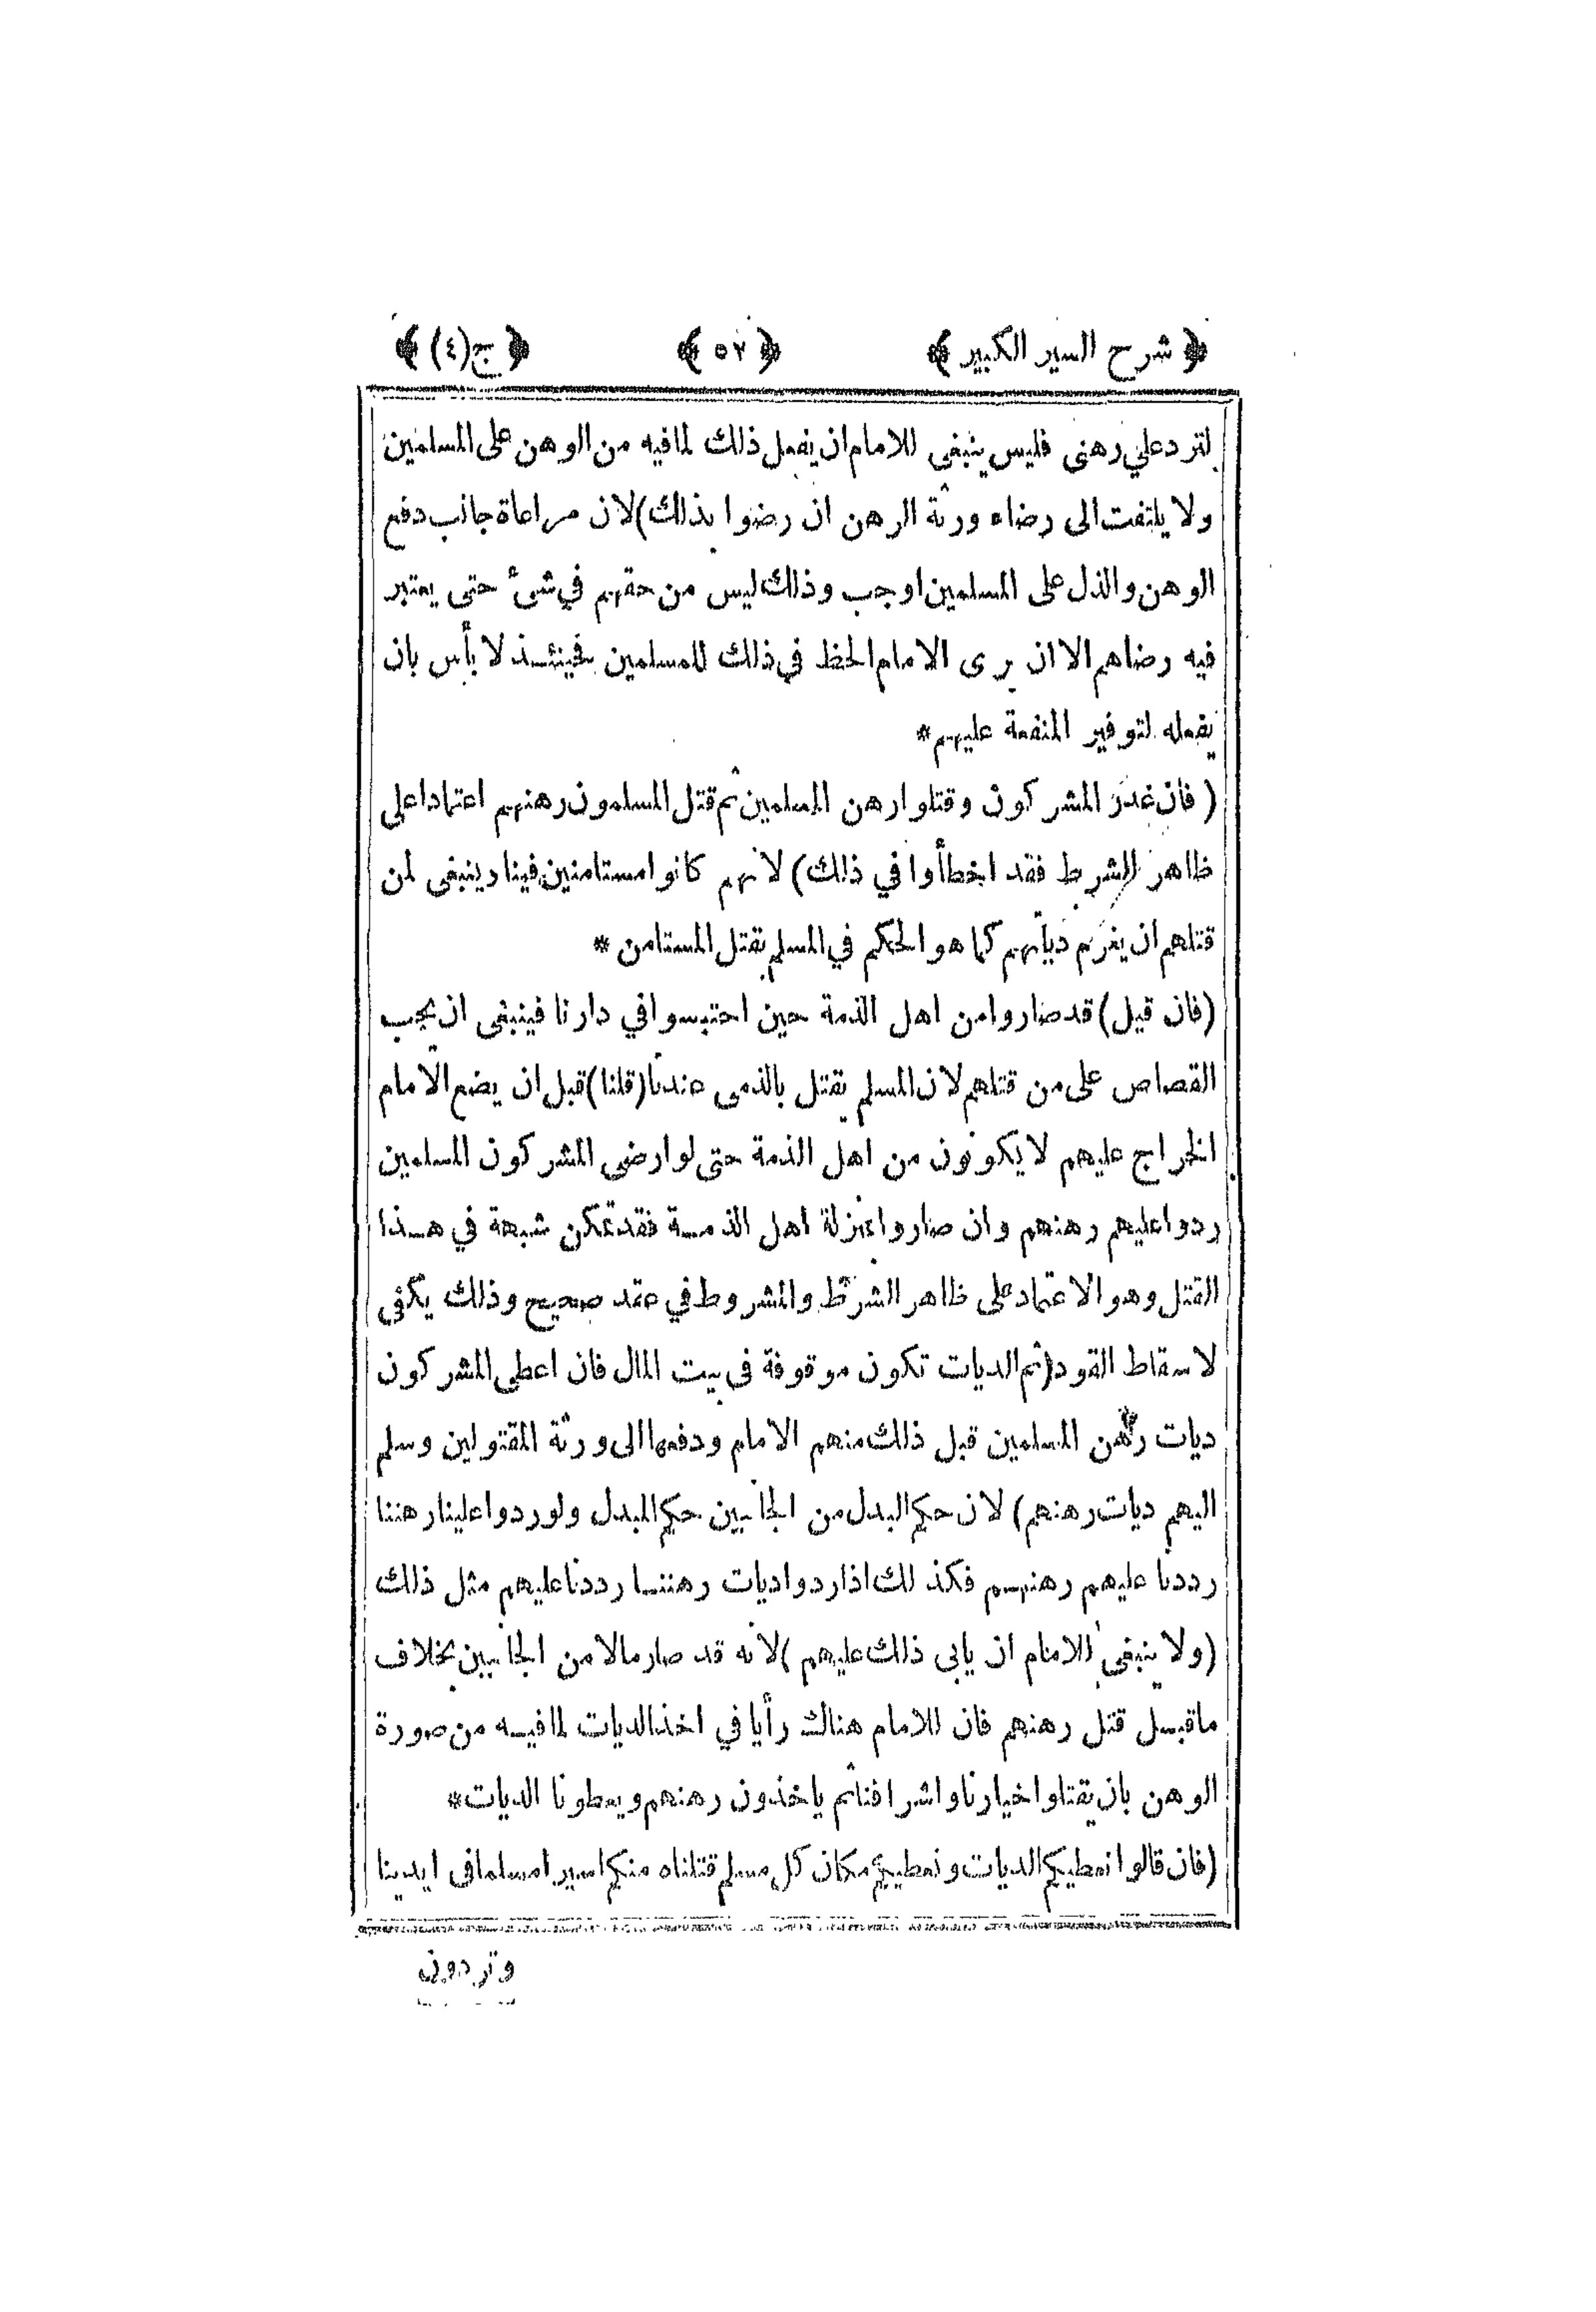 ﴿ شرح السير الكبير ﴾ ﴿ ٥٧ ﴾ ﴿ ج(٤) ﴾
لترد على رهنى فليس ينبغى للامام ان يفعل ذلك لما فيه من الوهن على المسلمين
ولا يلتفت الى رضاء ورثة الرهن ان رضوا بذلك) لان مراعاة جانب دفع
الوهن والذل على المسلمين اوجب وذلك ليس من حقهم في شئ حتى يعتبر
فيه رضاهم الا ان يرى الامام الحظ في ذلك للمسلمين فحينئذ لا بأس بان
يفعله لتوفير المنفعة عليهم*
( فان غدر المشركون وقتلوا رهن المسلمين ثم قتل المسلمون رهنهم اعتمادا على
ظاهر الشرط فقد اخطأوا في ذلك) لانهم كانوا مستامنين فينا وينبغى لمن
قتلهم ان يغرم دياتهم كما هو الحكم في المسلم يقتل المستامن *
(فان قيل) قد صاروا من اهل الذمة حين احتبسوا في دارنا فينبغى ان يجب
القصاص على من قتلهم لان المسلم يقتل بالذمى عندنا (قلنا) قبل ان يضع الامام
الخراج عليهم لا يكونون من اهل الذمة حتى لو ارضى المشركون المسلمين
ردوا عليهم رهنهم وان صاروا بمنزلة اهل الذمة فقد تمكن شبهة في هذا
القتل وهو الاعتماد على ظاهر الشرط والمشروط في عقد صحيح وذلك يكفي
لاسقاط القود (ثم الديات تكون موقوفة فى بيت المال فان اعطى المشركون
ديات رهن المسلمين قبل ذلك منهم الامام ودفعها الى ورثة المقتولين وسلم
اليهم ديات رهنهم) لان حكم البدل من الجانبين حكم المبدل ولو ردوا علينا رهننا
رددنا عليهم رهنهم فكذلك اذا ردوا ديات رهننا رددنا عليهم مثل ذلك
(ولا ينبغى للامام ان يابى ذلك عليهم) لانه قد صار مالا من الجانبين بخلاف
ما قبل قتل رهنهم فان للامام هناك رأيا في اخذ الديات لما فيه من صورة
الوهن بان يقتلوا اخيارنا واشرافنا ثم ياخذون رهنهم ويعطونا الديات*
(فان قالوا نعطيكم الديات ونعطيكم مكان كل مسلم قتلناه منكم اسيرا مسلما فى ايدينا
وتردون